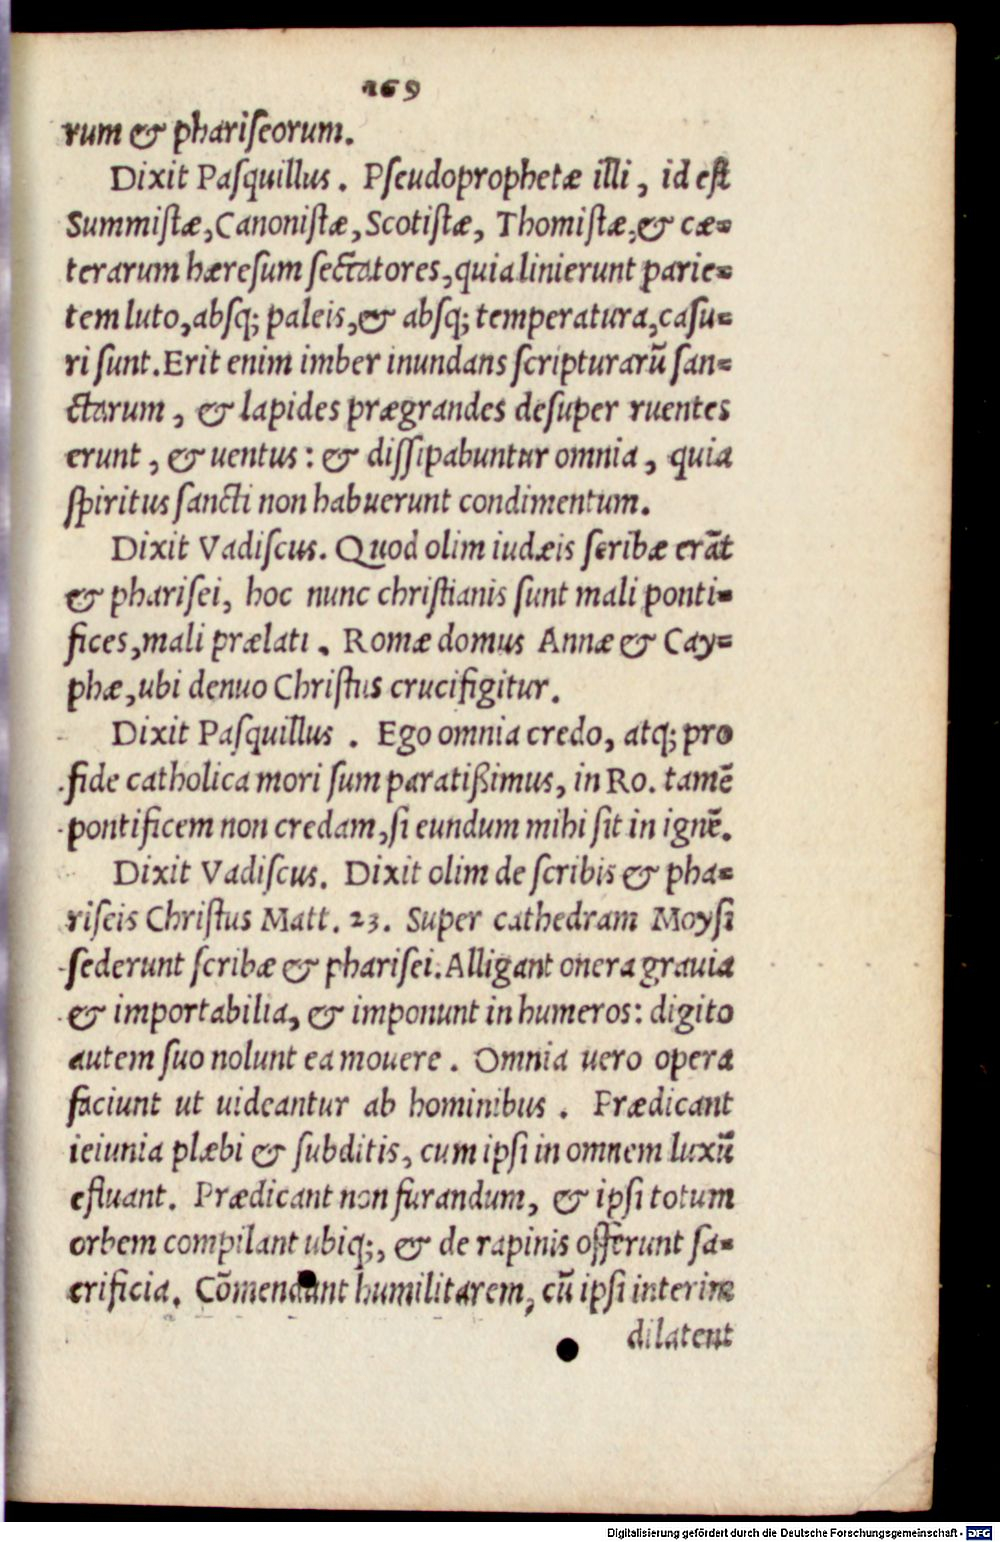 169
rum & phariſeorum.
Dixit Paſquillus. Pſeudoprophetæ illi, id eſt
Summiſtæ, Canoniſtæ, Scotiſtæ, Thomiſtæ, & cæ=
terarum hæreſum ſectatores, quia linierunt parie=
tem luto, abſq; paleis, & abſq; temperatura, caſu=
ri ſunt. Erit enim imber inundans ſcripturarũ ſan=
ctarum, & lapides prægrandes deſuper ruentes
erunt, & uentus: & diſſipabuntur omnia, quia
ſpiritus ſancti non habuerunt condimentum.
Dixit Vadiſcus. Quod olim iudæis ſcribæ erãt
& phariſei, hoc nunc chriſtianis ſunt mali ponti=
fices, mali prælati. Romæ domus Annæ & Cay=
phæ, ubi denuo Chriſtus crucifigitur.
Dixit Paſquillus. Ego omnia credo, atq; pro
fide catholica mori ſum paratißimus, in Ro. tamẽ
pontificem non credam, ſi eundum mihi ſit in ignẽ.
Dixit Vadiſcus. Dixit olim de ſcribis & pha=
riſeis Chriſtus Matt. 23. Super cathedram Moyſi
ſederunt ſcribæ & phariſei. Alligant onera grauia
& importabilia, & imponunt in humeros: digito
autem ſuo nolunt ea mouere. Omnia uero opera
faciunt ut uideantur ab hominibus. Prædicant
ieiunia plæbi & ſubditis, cum ipſi in omnem luxũ
efluant. Prædicant non furandum, & ipſi totum
orbem compilant ubiq;, & de rapinis offerunt ſa=
crificia. Cõmendant humilitatem, cũ ipſi interim
dilatent
Digitalisierung gefördert durch die Deutsche Forschungsgemeinschaft - DFG